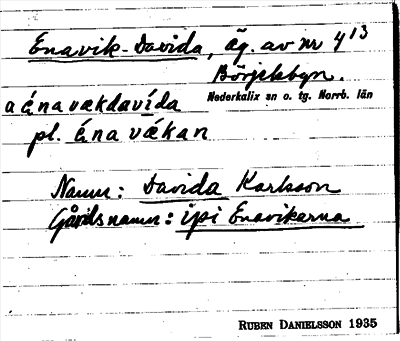 Enavik-Davida, äg. av nr 4¹³
Börjelsbyn.
Nederkalix sn o. tg. Norrb. län
a éna vækdavída
pl. éna vǽkan
Namn: Davida Karlsson
Gårdsnamn: ipi Enavikarna
RUBEN DANIELSSON 1935